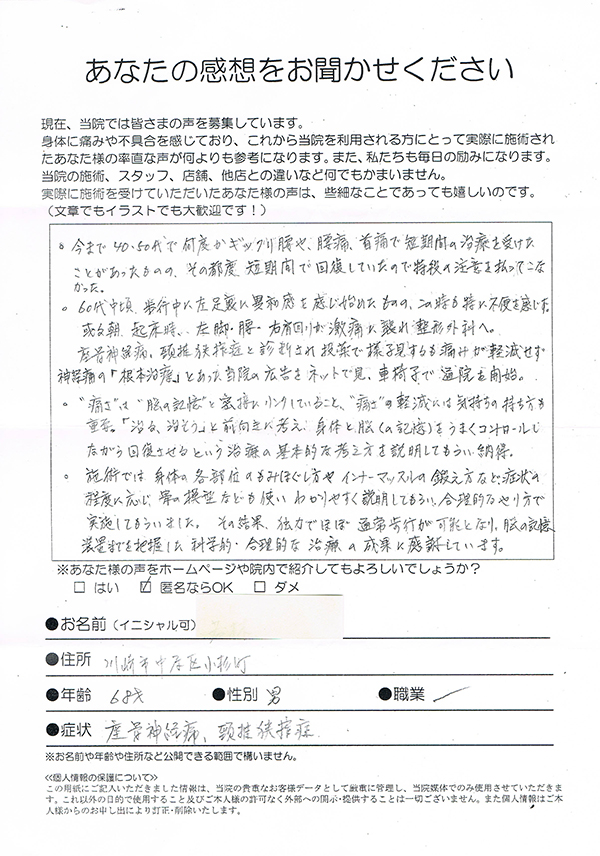 あなたの感想をお聞かせください
現在、当院では皆さまの声を募集しています。
身体に痛みや不具合を感じており、これから当院を利用される方にとって実際に施術され
たあなた様の率直な声が何よりも参考になります。また、私たちも毎日の励みになります。
当院の施術、スタッフ、店舗、他店との違いなど何でもかまいません。
実際に施術を受けていただいたあなた様の声は、些細なことであっても嬉しいのです。
（文章でもイラストでも大歓迎です！）
。今まで40・50代で何度かギックリ腰や、腰痛、首痛で短期間の治療を受けた
ことがあったものの、その都度 短期間で回復していたので特段の注意を払ってこな
かった。
。60代中頃、歩行中に左足裏に異和感を感じ始めたものの、この時も特に不便を感じず。
或る朝、起床時、左脚・腰・右肩回りが激痛に襲れ整形外科へ。
座骨神経痛、頸椎狭搾症と診断され投薬で様子見するも痛みが軽減せず
神経痛の「根本治療」とあった当院の広告をネットで見、車椅子で通院を開始。
。"痛さ"は"脳の記憶"と密接にリンクしていること、"痛さ"の軽減には気持ちの持ち方も
重要。「治る、治そう」と前向きに考え、身体と脳(の記憶)をうまくコントロールし
ながら回復させるという治療の基本的な考え方を説明してもらい納得。
。施術では身体の各部位のもみほぐし方やインナーマッスルの鍛え方など、症状の
程度に応じ、骨の模型なども使い わかりやすく説明してもらい、合理的なやり方で
実施してもらいました。その結果、独力でほぼ通常歩行が可能となり、脳の記憶
装置までを把握した科学的・合理的な治療の成果に感謝しています。
※あなた様の声をホームページや院内で紹介してもよろしいでしょうか？
□ はい ☑ 匿名ならOK □ ダメ
●お名前（イニシャル可）
●住所 川崎市中原区小杉町
●年齢 68才 ●性別 男 ●職業
●症状 座骨神経痛、頸椎狭搾症
※お名前や年齢や住所など公開できる範囲で構いません。
≪個人情報の保護について≫
この用紙にご記入いただきました情報は、当院の貴重なお客様データとして厳重に管理し、当院媒体でのみ使用させていただきま
す。これ以外の目的で使用すること及びご本人様の許可なく外部への開示・提供することは一切ございません。また個人情報はご本
人様からのお申し出により訂正・削除いたします。